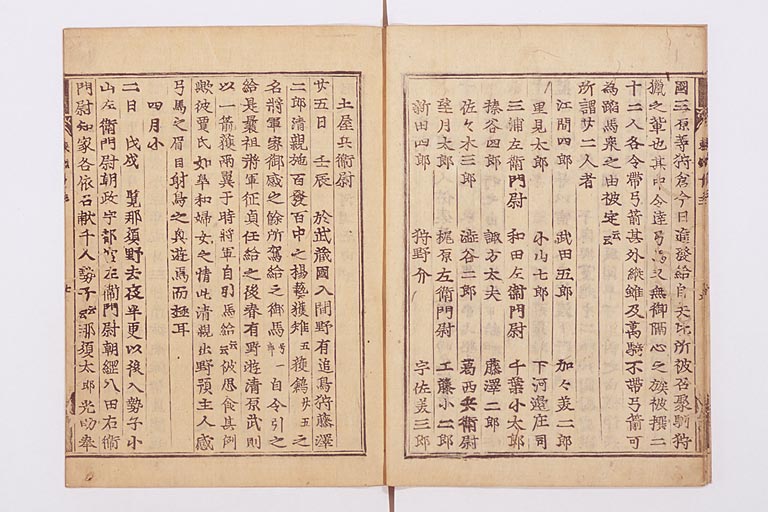 國三原等狩倉今日進發給自去比所被召聚馴狩
獵之輩也其中令達弓馬又無御隔心之族被撰二
十二人各令帶弓箭其外縱雖及萬騎不帶弓箭可
為踏馬衆之由被定云云
所謂廿二人者
江間四郎 武田五郎 加々美二郎
里見太郎 小山七郎 下河邊庄司
三浦左衛門尉 和田左衛門尉 千葉小太郎
榛谷四郎 諏方大夫 藤澤二郎
佐々木三郎 澁谷二郎 葛西兵衛尉
望月太郎 梶原左衛門尉 工藤小二郎
新田四郎 狩野介 宇佐美三郎
土屋兵衛尉
廿五日 壬辰 於武藏國入間野有追鳥狩藤澤
二郎清親施百發百中之揚藝獲雉五獲鶬廿五之
名將軍家御感之餘所駕給之御馬 一 自令引之
給是曩祖將軍征貞任給之後春有野遊清原武則
以一箭獲兩翼于時將軍自引馬給云云彼思食其例
歟彼賈氏如皐和婦女之情此清親出野預主人感
弓馬之眉目射鳥之興遊焉而極耳
四月小
二日 戊戌 覽那須野去夜半更以後入勢子小
山左衛門尉朝政宇都宮左衛門尉朝經八田右衛
門尉知家各依召献千人勢子云云那須太郎光助奉